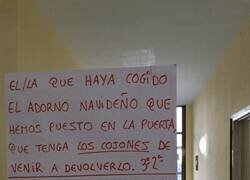 EL/LA QUE HAYA COGIDO
EL ADORNO NAVIDEÑO QUE
HEMOS PUESTO EN LA PUERTA
QUE TENGA LOS COJONES DE
VENIR A DEVOLVERLO. 3º 2ª